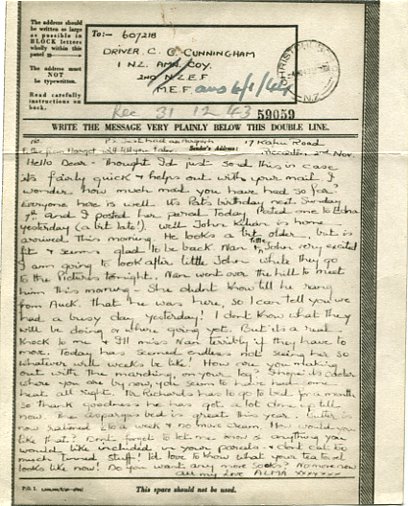 The address should
be written as large
as possible in
BLOCK letters
wholly within this
panel
The address must
NOT
be typewritten.
Read carefully
instructions on
back.
To:— 607218
DRIVER. C. G. CUNNINGHAM
1 N.Z. AMN. COY.
2ND N.Z.E.F
M.E.F. ans 6/1/44
CHRISTCHURCH
N.Z.
Rec 31 12 43
59059
WRITE THE MESSAGE VERY PLAINLY BELOW THIS DOUBLE LINE.
Sender's Address:
17 Kahu Road
Riccarton 2nd Nov.
Hello Dear - Thought I'd just send this in case
its fairly quick & helps out with your mail I
wonder how much mail you have had so far?
Everyone here is well. Its Pat's birthday next Sunday
7th and I posted her parcel Today. Posted one to Edna
yesterday (a bit late!). Well John is home
arrived this morning. He looks a bit older but is
fit & seems glad to be back. Nan & little John very excited
I am going to look after little John while they go
to the Pictures tonight. Nan went over the hill to meet
him this morning - She didnt know till he rang
from Auck. that he was here, so I can tell you we
had a busy day yesterday! I dont know what they
will be doing or where going yet. But its a real
knock to me & I'll miss Nan terribly if they have to
move. Today has seemed endless not seeing her so
whatever will weeks be like! How are you making
out with the marching on your leg? I hope its cooler
where you are by now, you seem to have had some
heat all right. Mr Richards has to go to bed for a month
so thank goodness he has got a lot done up till
now. The aspargas bed is great this year. Butter is
now rationed to a week & no more cream. How would you
like that? Dont forget to let me know if anything you
would like included in your parcels & dont eat too
much tinned stuff! I'd love to know what your tea
looks like now! Do you want any more socks? No more now
all my love ALMA xxxxxxx
This space should not be used.